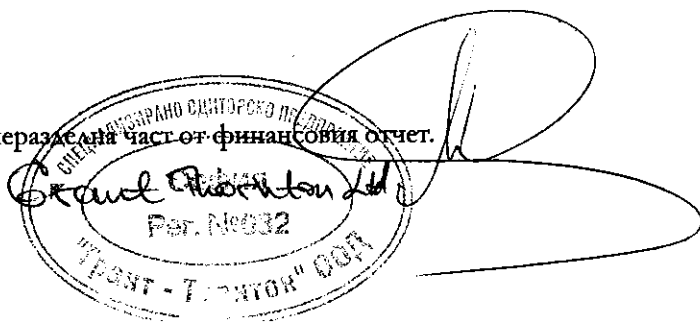 неразделна част от финансовия отчет.
СПЕЦИАЛИЗИРАНО ОДИТОРСКО ПРЕДПРИЯТИЕ
София
Grant Thornton Ltd.
Рег. №032
"Грант - Торнтон" ООД